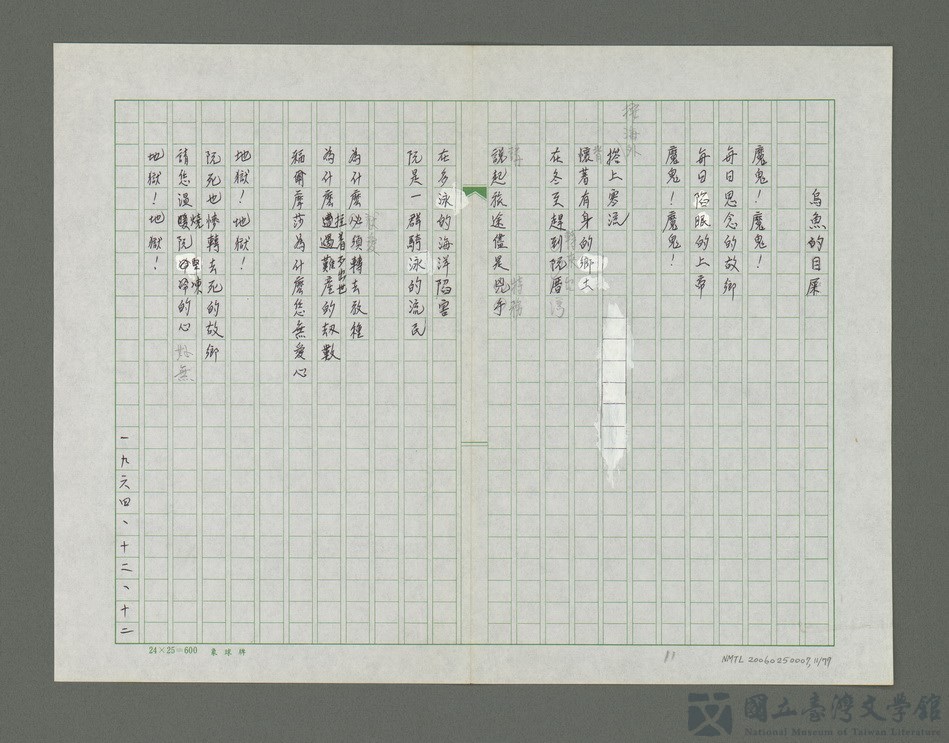 烏魚的目屎
魔鬼！魔鬼！
每日思念的故鄉
每日陷眠的上帝
魔鬼！魔鬼！
從海外
搭上寒流
懷著有身的鄉土
在冬至趕到阮厝
說起旅途儘是兇手
特務
在多泳的海洋陷害
阮是一群騎泳的流民
為什麼必須轉去放種
拉着不出世
為什麼遭遇難產的劫數
福爾摩莎為什麼恁無愛心
地獄！地獄！
阮死也慘轉去死的故鄉
燒 堅凍
請恁漫暖阮冷冷的心
地獄！地獄！
一九六四、十二、十二
24×25＝600 東球牌
11
NMTL 20060250007, 11/79
國立臺灣文學館
National Museum of Taiwan Literature